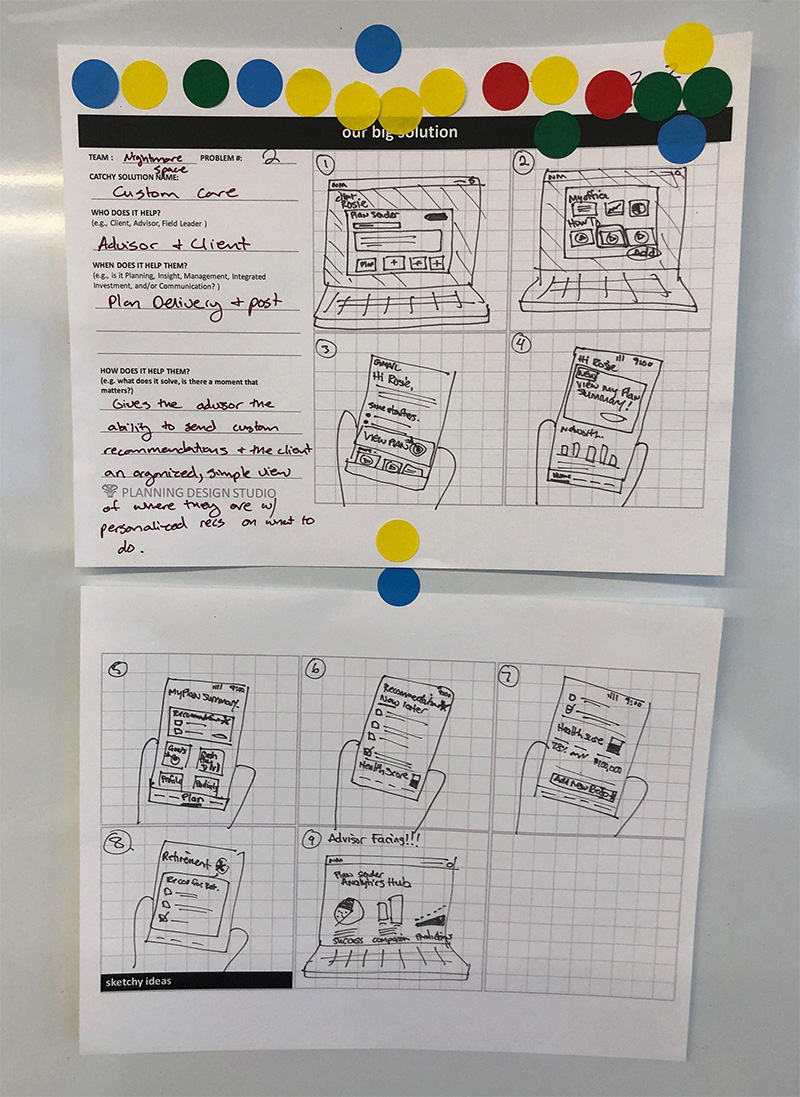 2 2
our big solution
TEAM: Nightmare Space PROBLEM #: 2
CATCHY SOLUTION NAME:
Custom Care
WHO DOES IT HELP?
(e.g., Client, Advisor, Field Leader )
Advisor + Client
WHEN DOES IT HELP THEM?
(e.g., is it Planning, Insight, Management, Integrated
Investment, and/or Communication? )
Plan Delivery + post
HOW DOES IT HELP THEM?
(e.g. what does it solve, is there a moment that
matters?)
Gives the advisor the
ability to send custom
recommendations + the client
an organized, simple view
PLANNING DESIGN STUDIO
of where they are w/
personalized recs on what to
do.
1
NM
Client
Rosie
Plan Sender
Plan + + +
2
NM
My office
How To
Add
3
GMAIL
Hi Rosie,
some starters.
VIEW PLAN
4
9:00
Hi Rosie
New
VIEW MY PLAN
SUMMARY!
Networth
Home
5
9:00
My Plan Summary
Recommendations
Goals
Cash
Profile
Products
Plan
6
9:00
Recommendations
Now later
Health Score
7
9:00
Health Score
78%
$100,000
Add New
8
Retirement
Recos for Ret.
9 Advisor Facing!!!
NM
Plan Sender
Analytics Hub
success comparison Predictions
sketchy ideas